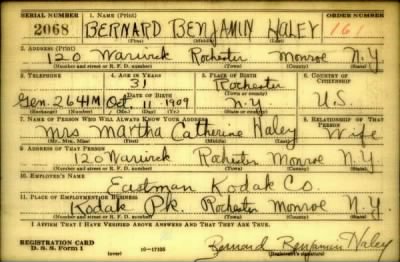 SERIAL NUMBER 1. NAME (Print) ORDER NUMBER
2068 BERNARD BENJAMIN HALEY 161
(First) (Middle) (Last)
2. ADDRESS (Print)
120 Warwick Rochester Monroe N.Y.
(Number and street or R. F. D. number) (Town) (County) (State)
3. TELEPHONE 4. AGE IN YEARS 5. PLACE OF BIRTH 6. COUNTRY OF CITIZENSHIP
31 Rochester
DATE OF BIRTH (Town or county)
Gen. 2641M Oct 1909 N.Y. U.S.
(Exchange) (Number) (Mo.) (Day) (Yr.) (State or country)
7. NAME OF PERSON WHO WILL ALWAYS KNOW YOUR ADDRESS 8. RELATIONSHIP OF THAT PERSON
Mrs Martha Catherine Haley Wife
(Mr., Mrs., Miss) (First) (Middle) (Last)
9. ADDRESS OF THAT PERSON
120 Warwick Rochester Monroe N.Y.
(Number and street or R. F. D. number) (Town) (County) (State)
10. EMPLOYER'S NAME
Eastman Kodak Co.
11. PLACE OF EMPLOYMENT OR BUSINESS
Kodak Pk. Rochester Monroe N.Y.
(Number and street or R. F. D. number) (Town) (County) (State)
I AFFIRM THAT I HAVE VERIFIED ABOVE ANSWERS AND THAT THEY ARE TRUE.
REGISTRATION CARD
D. S. S. Form 1 (over) 16-17105 Bernard Benjamin Haley
(Registrant's signature)